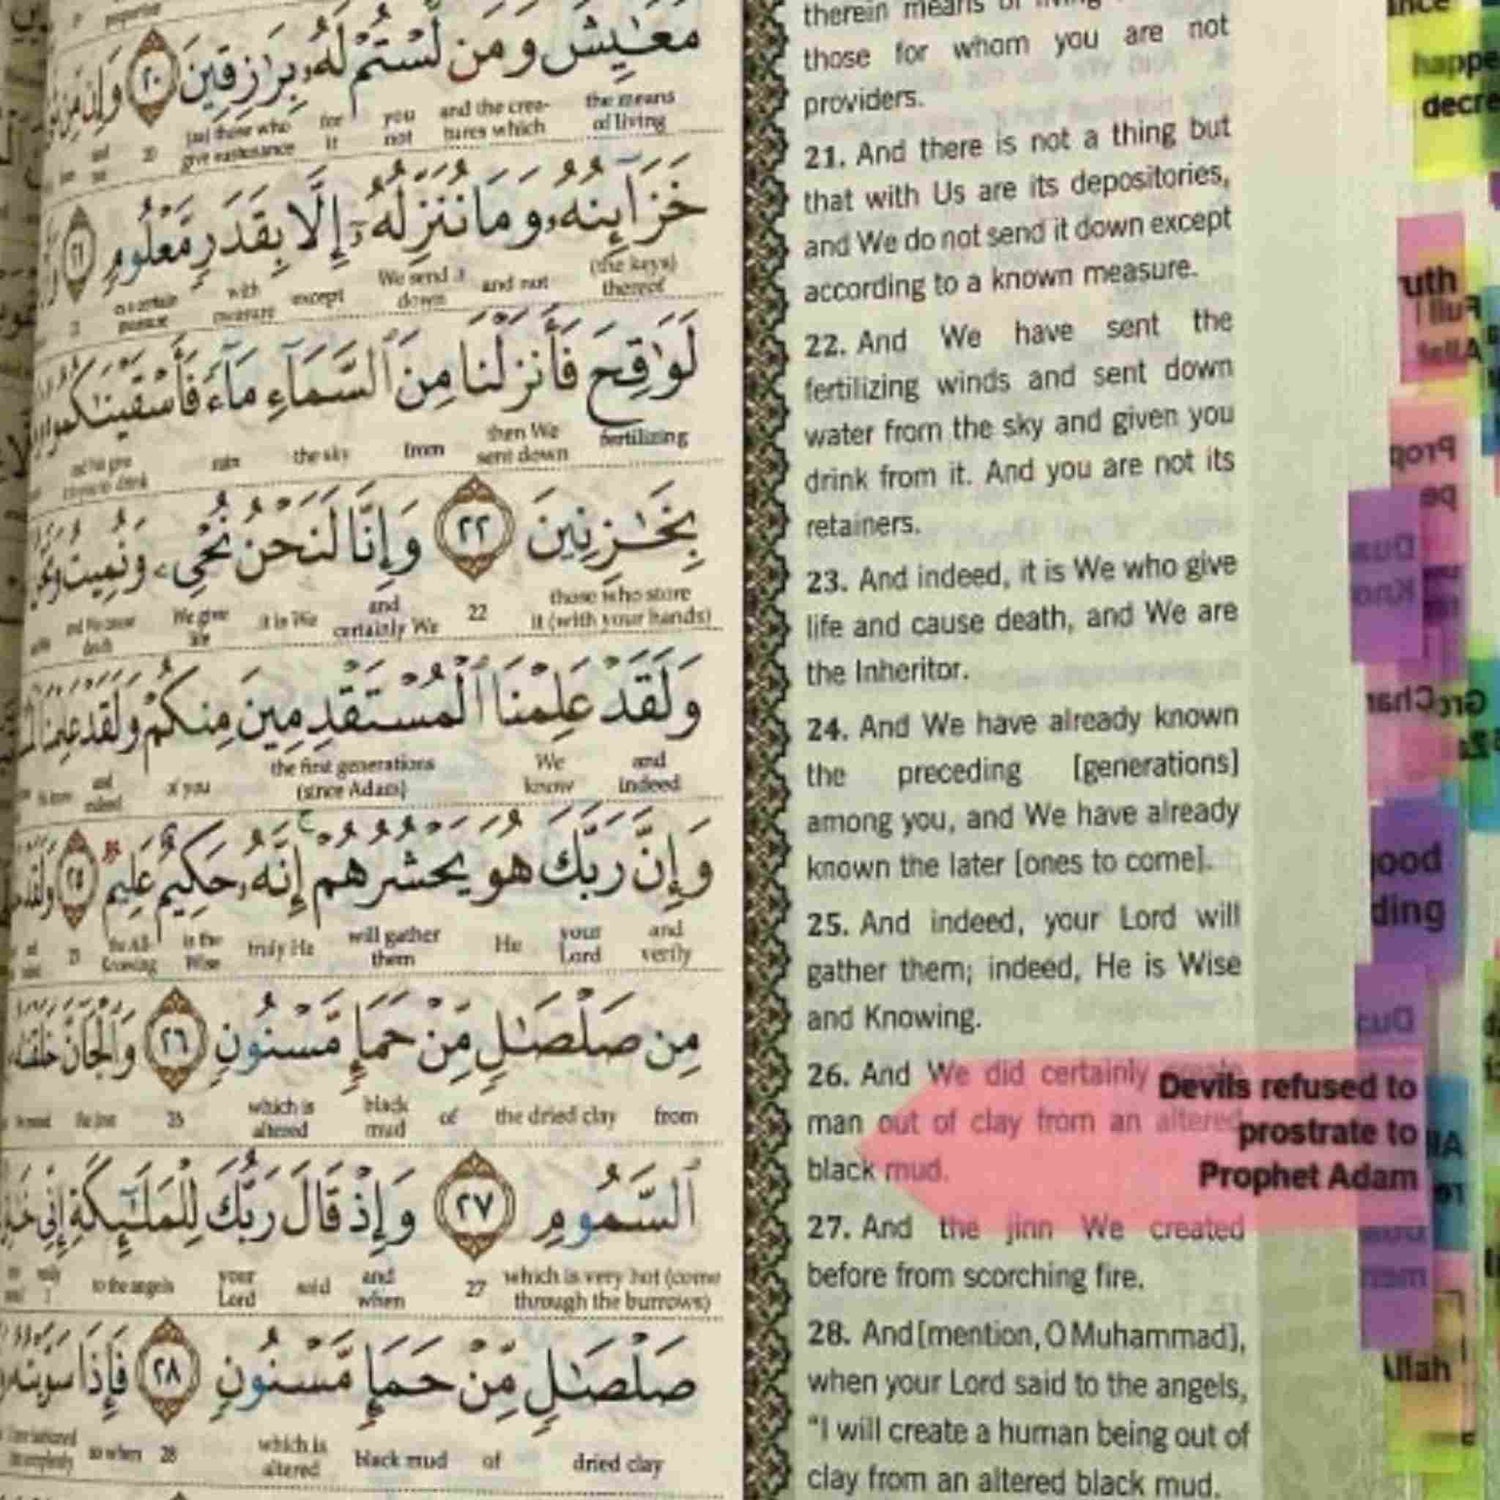 مَعَـٰيِشَ وَمَن لَّسْتُمْ لَهُۥ بِرَٰزِقِينَ ٢٠ وَإِن مِّن
the means of living
and the crea-tures which
you not
for it
[as] those who give sustenance
20
خَزَآئِنُهُۥ وَمَا نُنَزِّلُهُۥٓ إِلَّا بِقَدَرٍ مَّعْلُومٍ ٢١
(the keys) thereof
and not
We send it down
except
with measure
لَوَٰقِحَ فَأَنزَلْنَا مِنَ ٱلسَّمَآءِ مَآءً فَأَسْقَيْنَـٰكُمُوهُ
fertilizing
then We sent down
from
the sky
بِخَـٰزِنِينَ ٢٢ وَإِنَّا لَنَحْنُ نُحْىِۦ وَنُمِيتُ
those who store it (with your hands)
22
and certainly We
it is We
We give life
and We cause death
وَلَقَدْ عَلِمْنَا ٱلْمُسْتَقْدِمِينَ مِنكُمْ وَلَقَدْ عَلِمْنَا
and indeed
We know
the first generations (since Adam)
of you
and indeed
وَإِنَّ رَبَّكَ هُوَ يَحْشُرُهُمْ إِنَّهُۥ حَكِيمٌ عَلِيمٌ ٢٥ وَلَقَدْ
and verily
your Lord
He
will gather them
truly He
is the Wise
the All-Knowing
مِن صَلْصَـٰلٍ مِّنْ حَمَإٍ مَّسْنُونٍ ٢٦ وَٱلْجَآنَّ خَلَقْنَـٰهُ
from
the dried clay
of
black mud
which is altered
26
ٱلسَّمُومِ ٢٧ وَإِذْ قَالَ رَبُّكَ لِلْمَلَـٰٓئِكَةِ إِنِّى
which is very hot (come through the burrows)
27
and when
said
your Lord
to the angels
صَلْصَـٰلٍ مِّنْ حَمَإٍ مَّسْنُونٍ ٢٨ فَإِذَا سَوَّيْتُهُۥ
dried clay
of
black mud
which is altered
28
so when
therein means of living
those for whom you are not
providers.
21. And there is not a thing but
that with Us are its depositories,
and We do not send it down except
according to a known measure.
22. And We have sent the
fertilizing winds and sent down
water from the sky and given you
drink from it. And you are not its
retainers.
23. And indeed, it is We who give
life and cause death, and We are
the Inheritor.
24. And We have already known
the preceding [generations]
among you, and We have already
known the later [ones to come].
25. And indeed, your Lord will
gather them; indeed, He is Wise
and Knowing.
26. And We did certainly create
man out of clay from an altered
black mud.
27. And the jinn We created
before from scorching fire.
28. And [mention, O Muhammad],
when your Lord said to the angels,
"I will create a human being out of
clay from an altered black mud.
Devils refused to
prostrate to
Prophet Adam